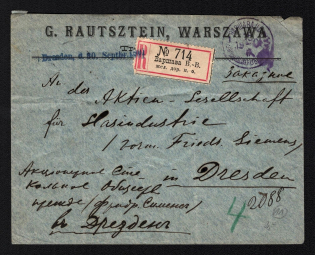 G. RAUTSZTEIN, WARSZAWA
Dresden, d 30. Septbr.
№ 714
Варшава В.-В.
Заказное
An die
Aktien-Gesellschaft
für Glasindustrie
/vorm. Friedr. Siemens/
in Dresden
Акционерное Сте-
кольное Общество
прежде /Фридр. Сименсъ/
въ Дрезденъ
4
2088